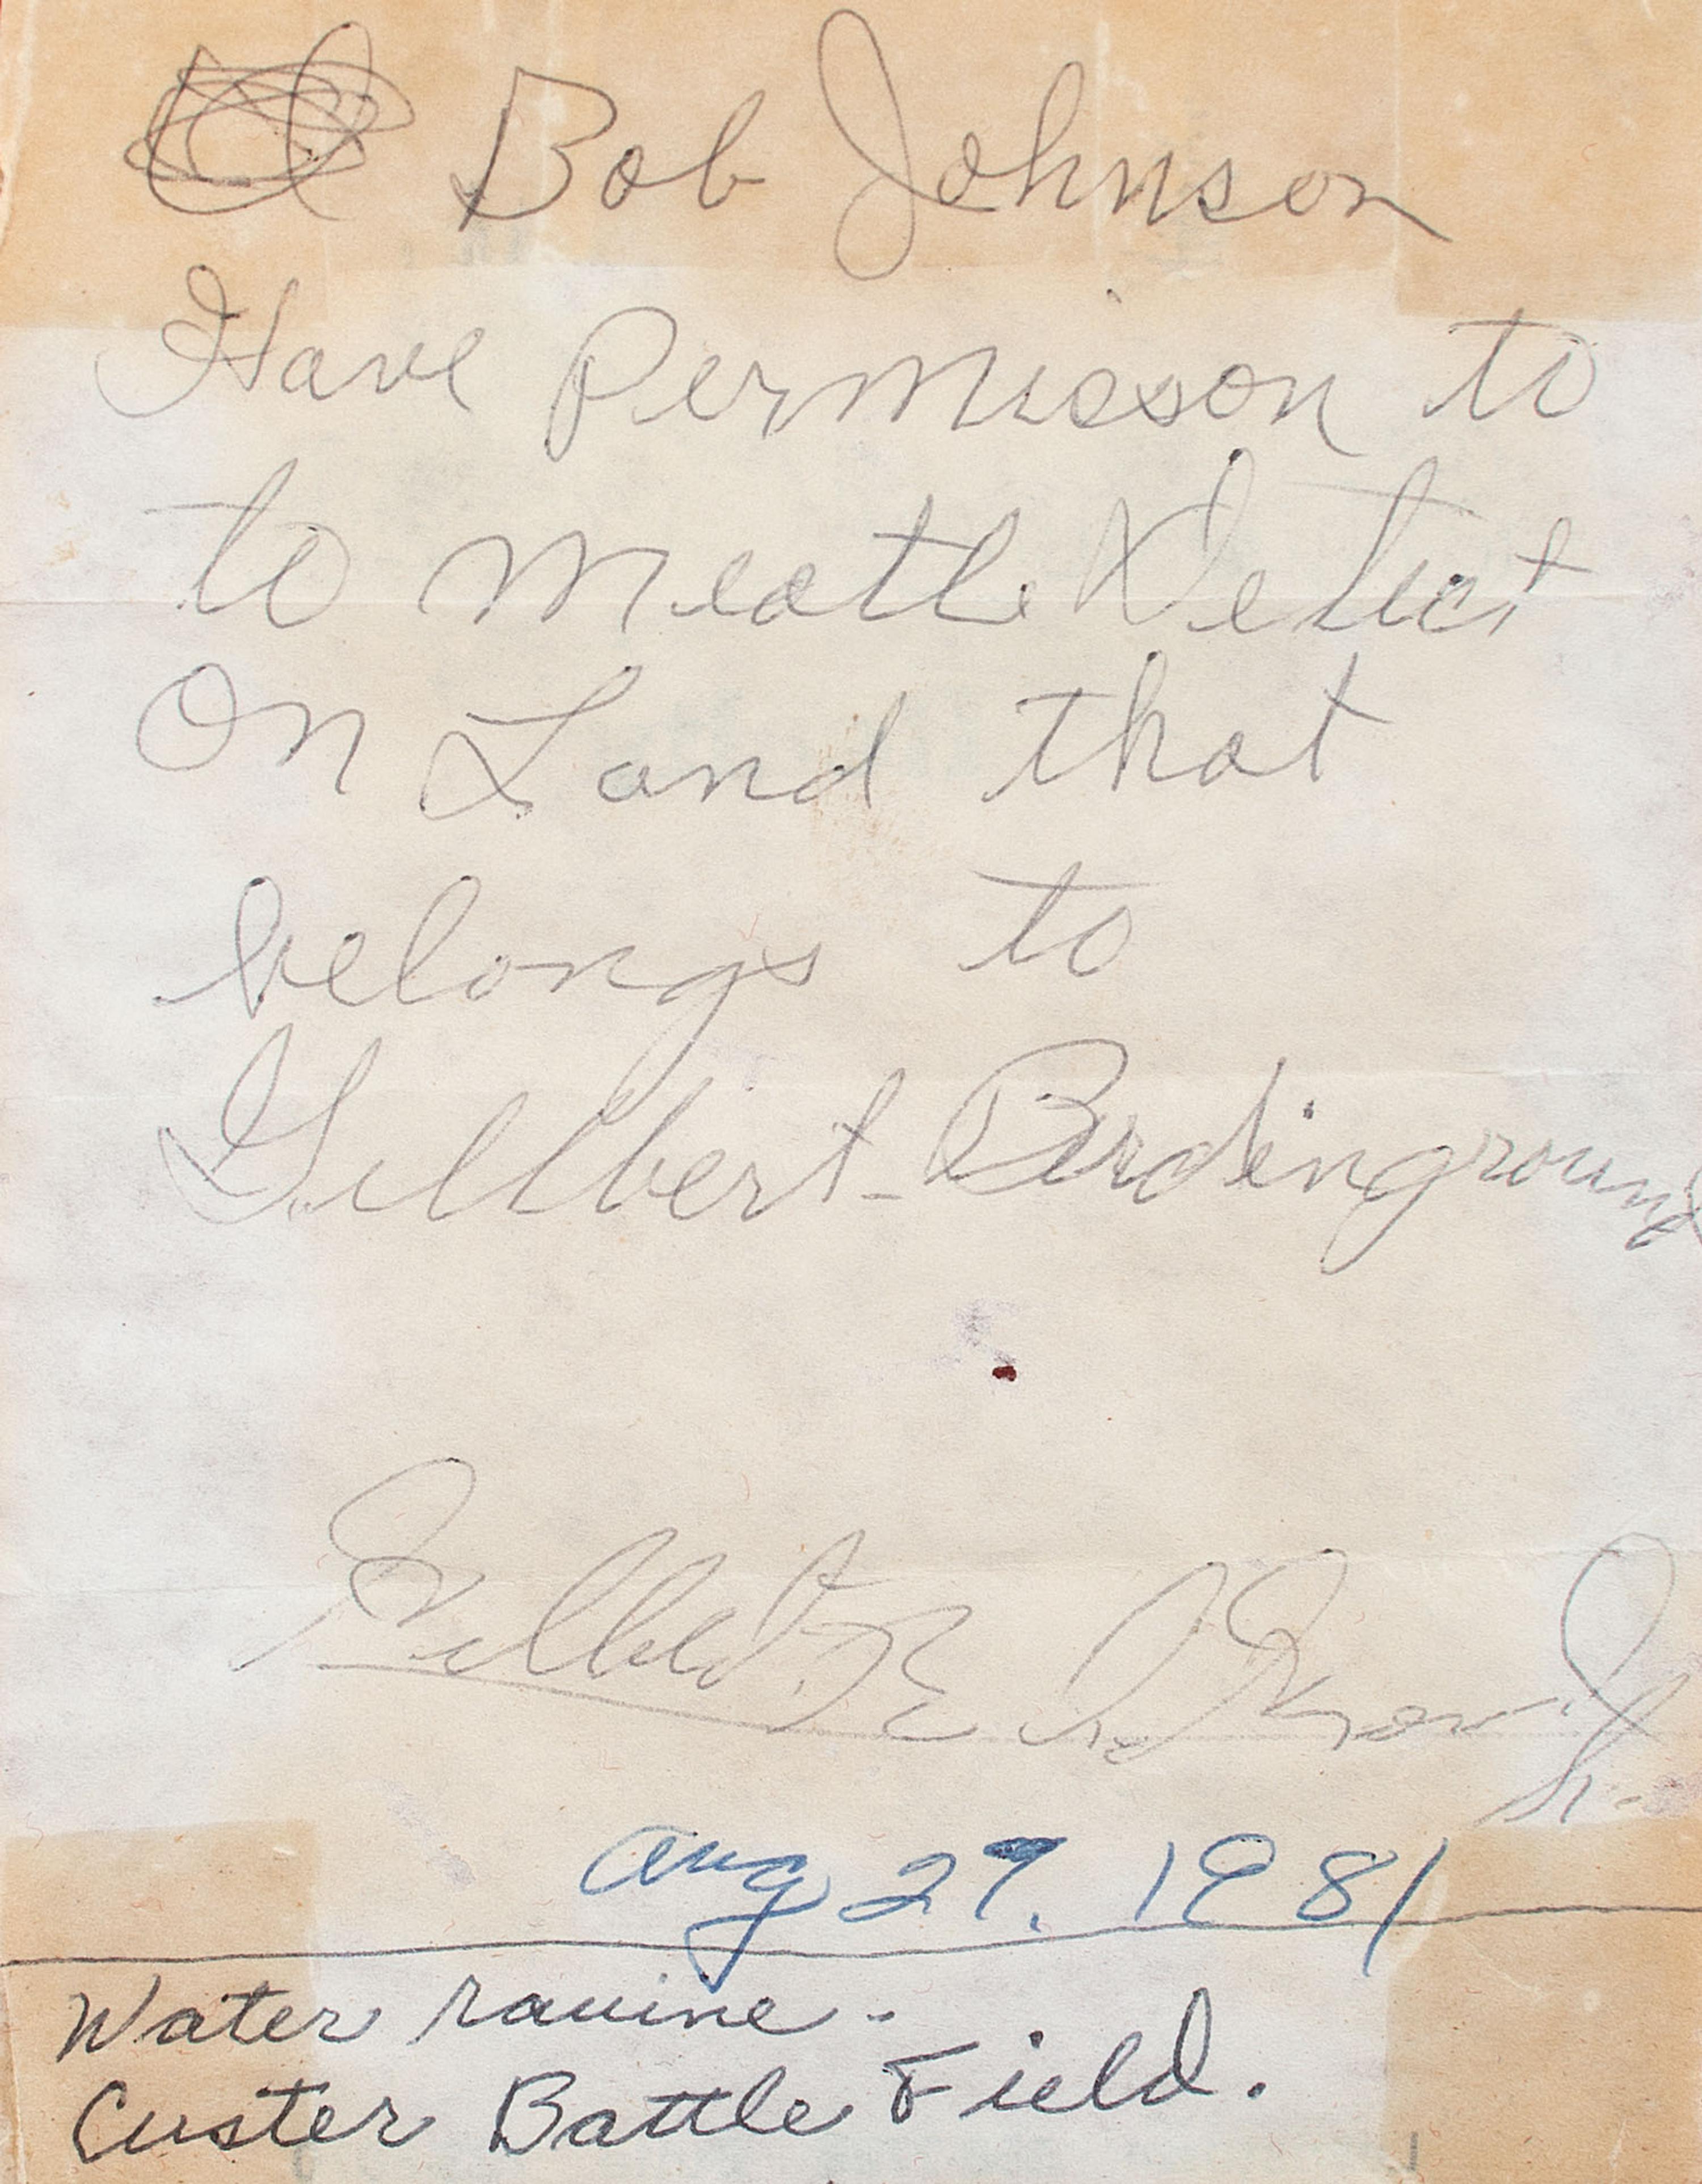 Bob Johnson
Have Permisson to
to meatle Detect
On Land that
belongs to
Gillbert-Birdinground
Aug 29. 1981
Water ravine -
Custer Battle Field.